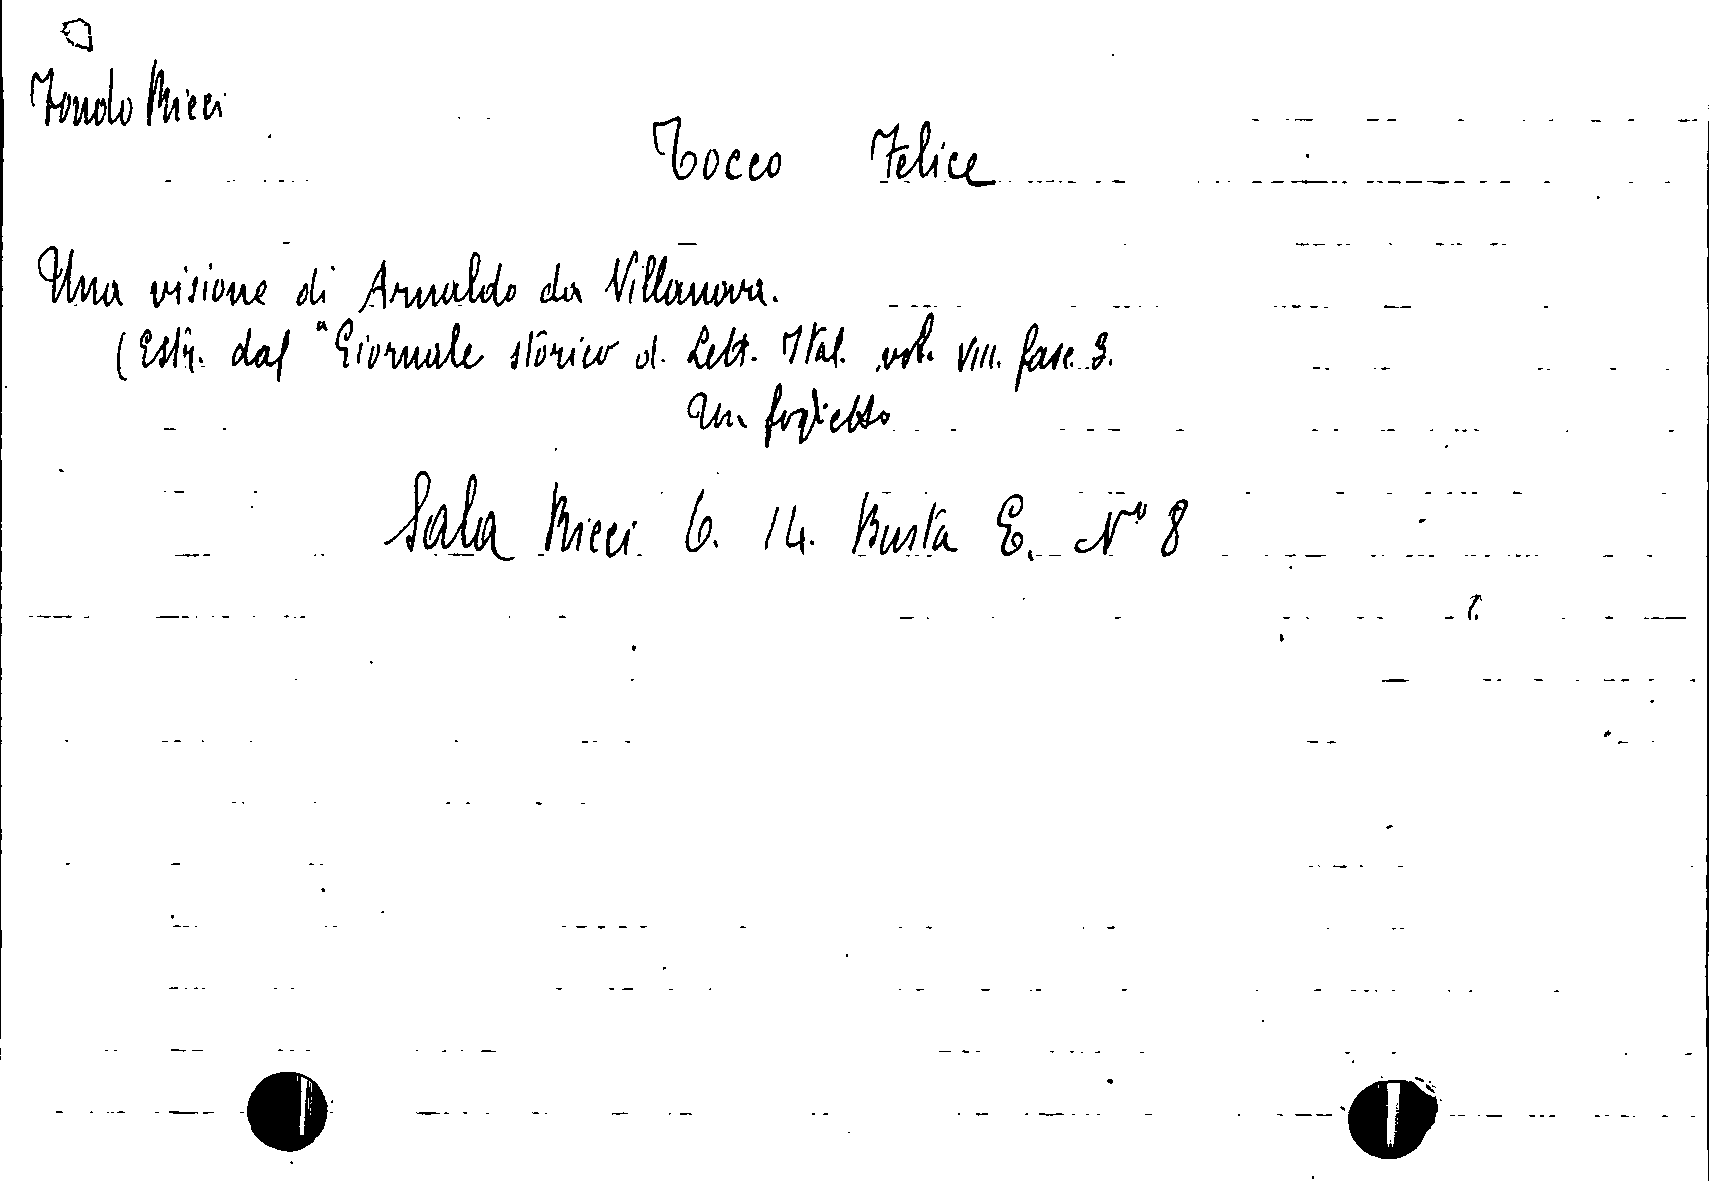 Fondo Ricci
Tocco Felice
Una visione di Arnaldo da Villanova.
(Estr. dal "Giornale storico d. Lett. Ital. vol. VIII. fasc. 3.
Un foglietto
Sala Ricci 6. 14. Busta E. N° 8